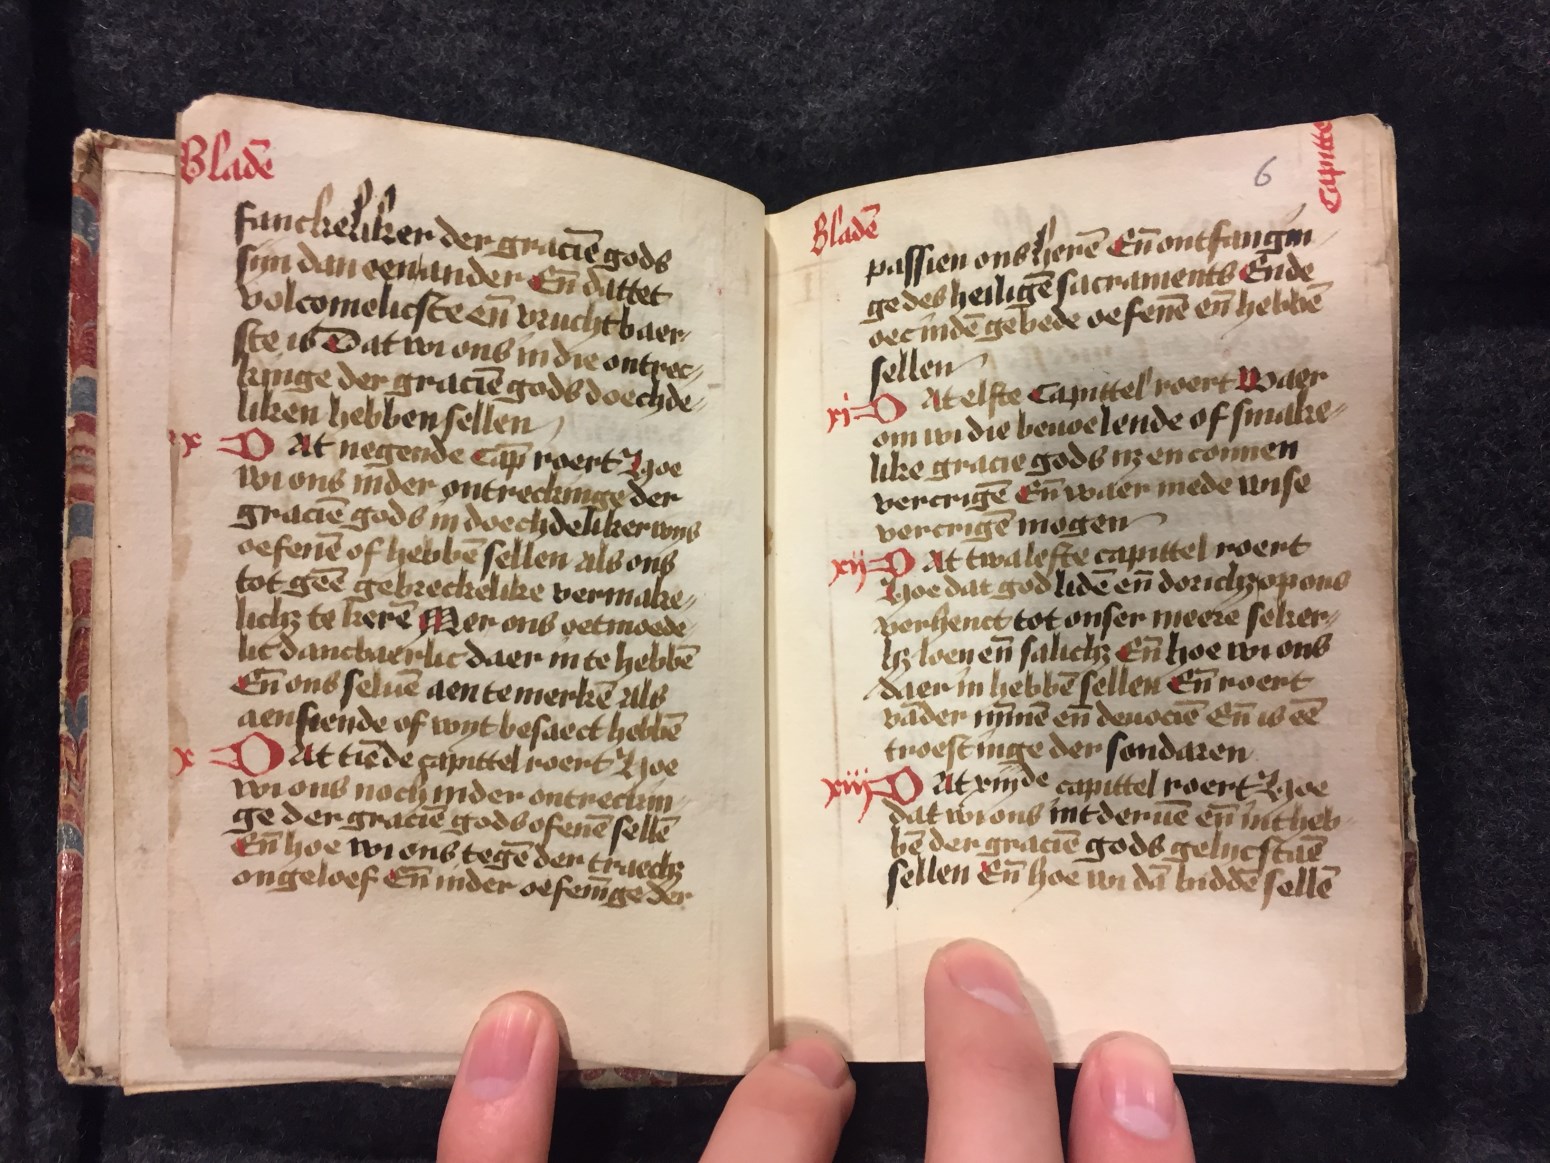 Bladē
fanckeliker der graciē gods
sijn dan een ander Eñ dattet
volcomelicste eñ vruchtbaer-
ste is Dat wi ons in die ontrec-
kinge der graciē gods doechde-
liken hebben sellen
ix DAt negende Cap̄ roert Hoe
wi ons inder ontreckinge der
graciē gods in doechdeliker wijs
oefenē of hebbē sellen als ons
tot geē gebreckelike vermake-
lichz te kerē Mer ons oetmoede-
lic dancbaerlic daer in te hebbē
Eñ ons seluē aen te merkē als
aensiende of wijt besaect hebbē
x DAt tiēde capittel roert Hoe
wi ons noch inder ontreckin-
ge der graciē gods ofenē sellē
Eñ hoe wi ons tegē der traechz
ongeloef Eñ inder oefenīge der
6
Capitte
Bladē
passien ons herē Eñ ontfangin-
ge des heiligē sacraments Ende
oec indē gebede oefenē eñ hebbē
sellen
xi DAt elfte Capittel roert Waer
om wi die beuoelende of smake-
like gracie gods nz en connen
vercrigē Eñ waer mede wise
vercrigē mogen
xij DAt twalefte capittel roert
Hoe dat god lidē eñ dorichz op ons
verhenct tot onser meere seker-
hz loen eñ salichz Eñ hoe wi ons
daer in hebbē sellen Eñ roert
vāder mīnē eñ deuociē Eñ is eē
troestinge der sondaren
xiij DAt xiijde capittel roert Hoe
dat wi ons int deruē eñ int heb-
bē der graciē gods gelijc staē
sellen Eñ hoe wi dā biddē sellē